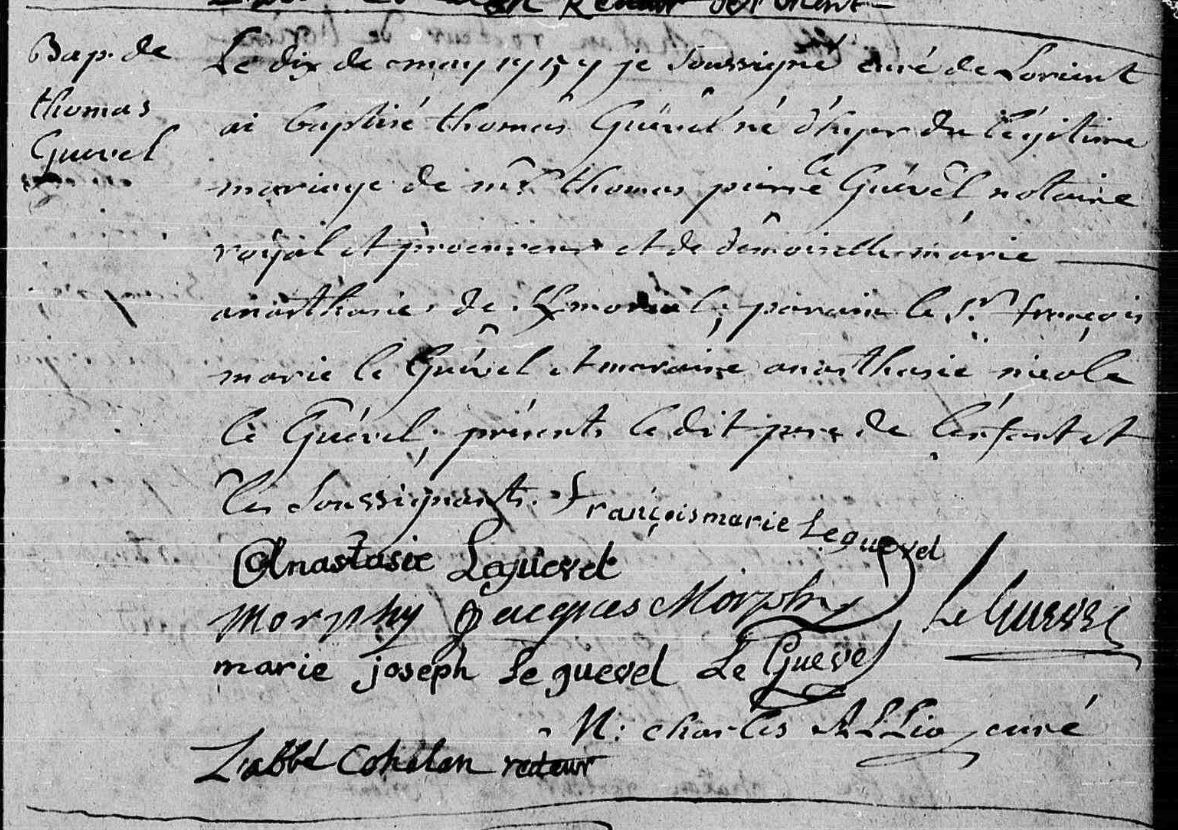 Recteur de Lorient
Bap. de
thomas
Guevel
Le dix de may 1757 je soussigné curé de Lorient
ai baptisé thomas Guével né d'hyer du légitime
mariage de mr thomas pierre le Guével notaire
royal et procureur et de demoiselle marie
anasthasie de parain le Sr françois
marie le Guével et maraine anasthasie nicole
le Guével, présents le dit pere de l'enfant et
les soussignants. françois marie Leguevel
Anastasie Leguevel
morphy Jacques Morphy Le Guevel
marie joseph Le guevel Le Guevel
N: charles ALLio curé
L'abbé Cohelen recteur